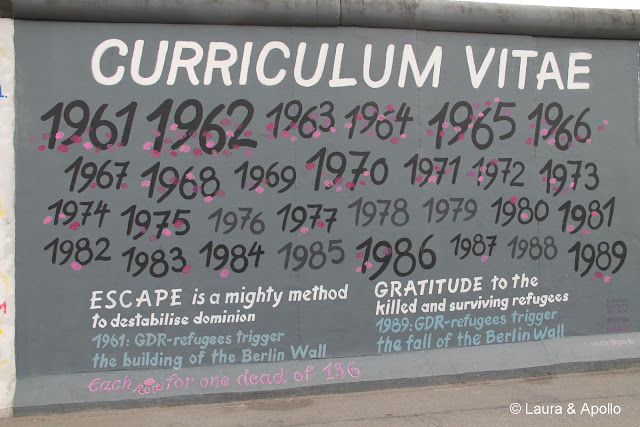 CURRICULUM VITAE
1961 1962 1963 1964 1965 1966
1967 1968 1969 1970 1971 1972 1973
1974 1975 1976 1977 1978 1979 1980 1981
1982 1983 1984 1985 1986 1987 1988 1989
ESCAPE is a mighty method
to destabilise dominion
1961: GDR-refugees trigger
the building of the Berlin Wall
GRATITUDE to the
killed and surviving refugees
1989: GDR-refugees trigger
the fall of the Berlin Wall
Each Rose for one dead of 136
© Laura & Apollo